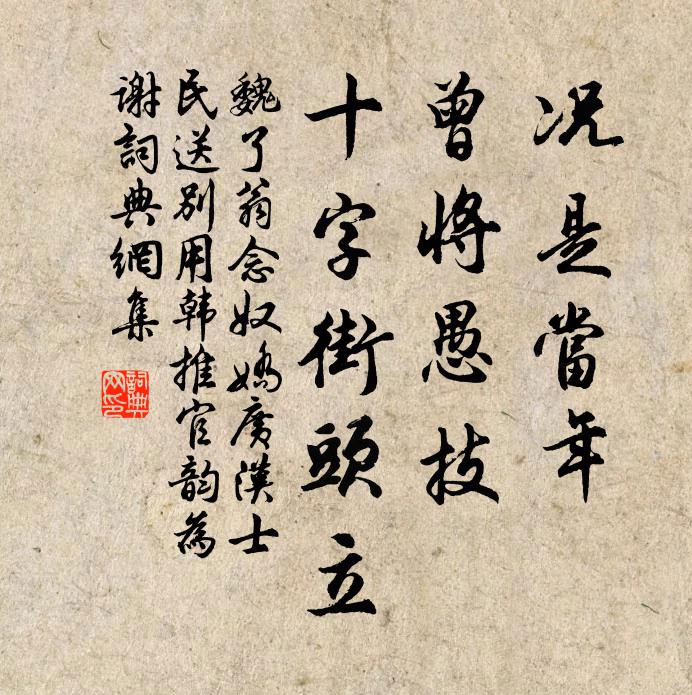 况是當年
曾將愚技
十字街頭立
魏了翁念奴嬌廣漢士
民送別用韩推官韵為
謝詞典網集
詞典網印